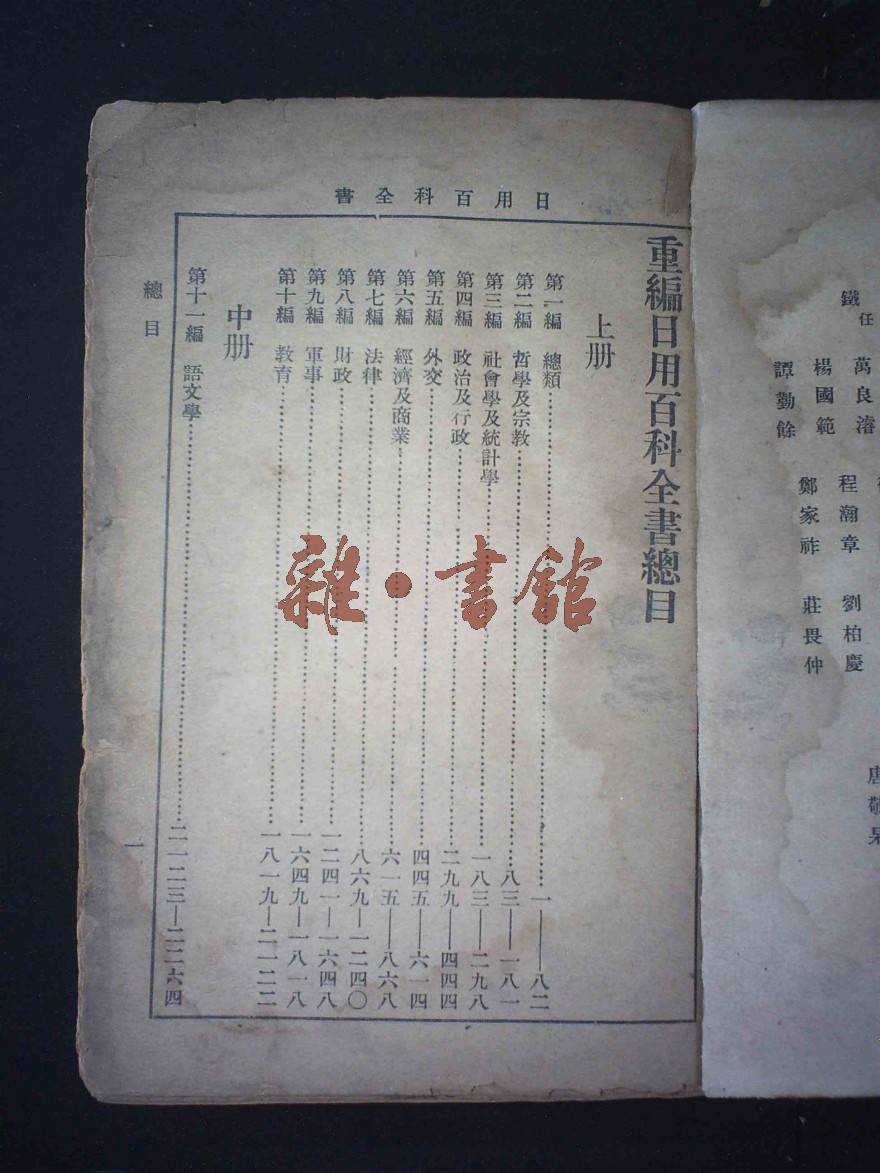 日用百科全書
重編日用百科全書總目
上册
第一編 總類……一——八二
第二編 哲學及宗教……八三—一八一
第三編 社會學及統計學……一八三—二九八
第四編 政治及行政……二九九—四四四
第五編 外交……四四五—六一四
第六編 經濟及商業……六一五—八六八
第七編 法律……八六九—一二四〇
第八編 財政……一二四一—一六四八
第九編 軍事……一六四九—一八一八
第十編 教育……一八一九—二一二二
中册
第十一編 語文學……二一二三—二二六四
總目
一
唐敬杲
鐵任
萬良濬 程瀚章 劉柏慶
楊國範 鄭家祚 莊畏仲
譚勤餘
雜·書館